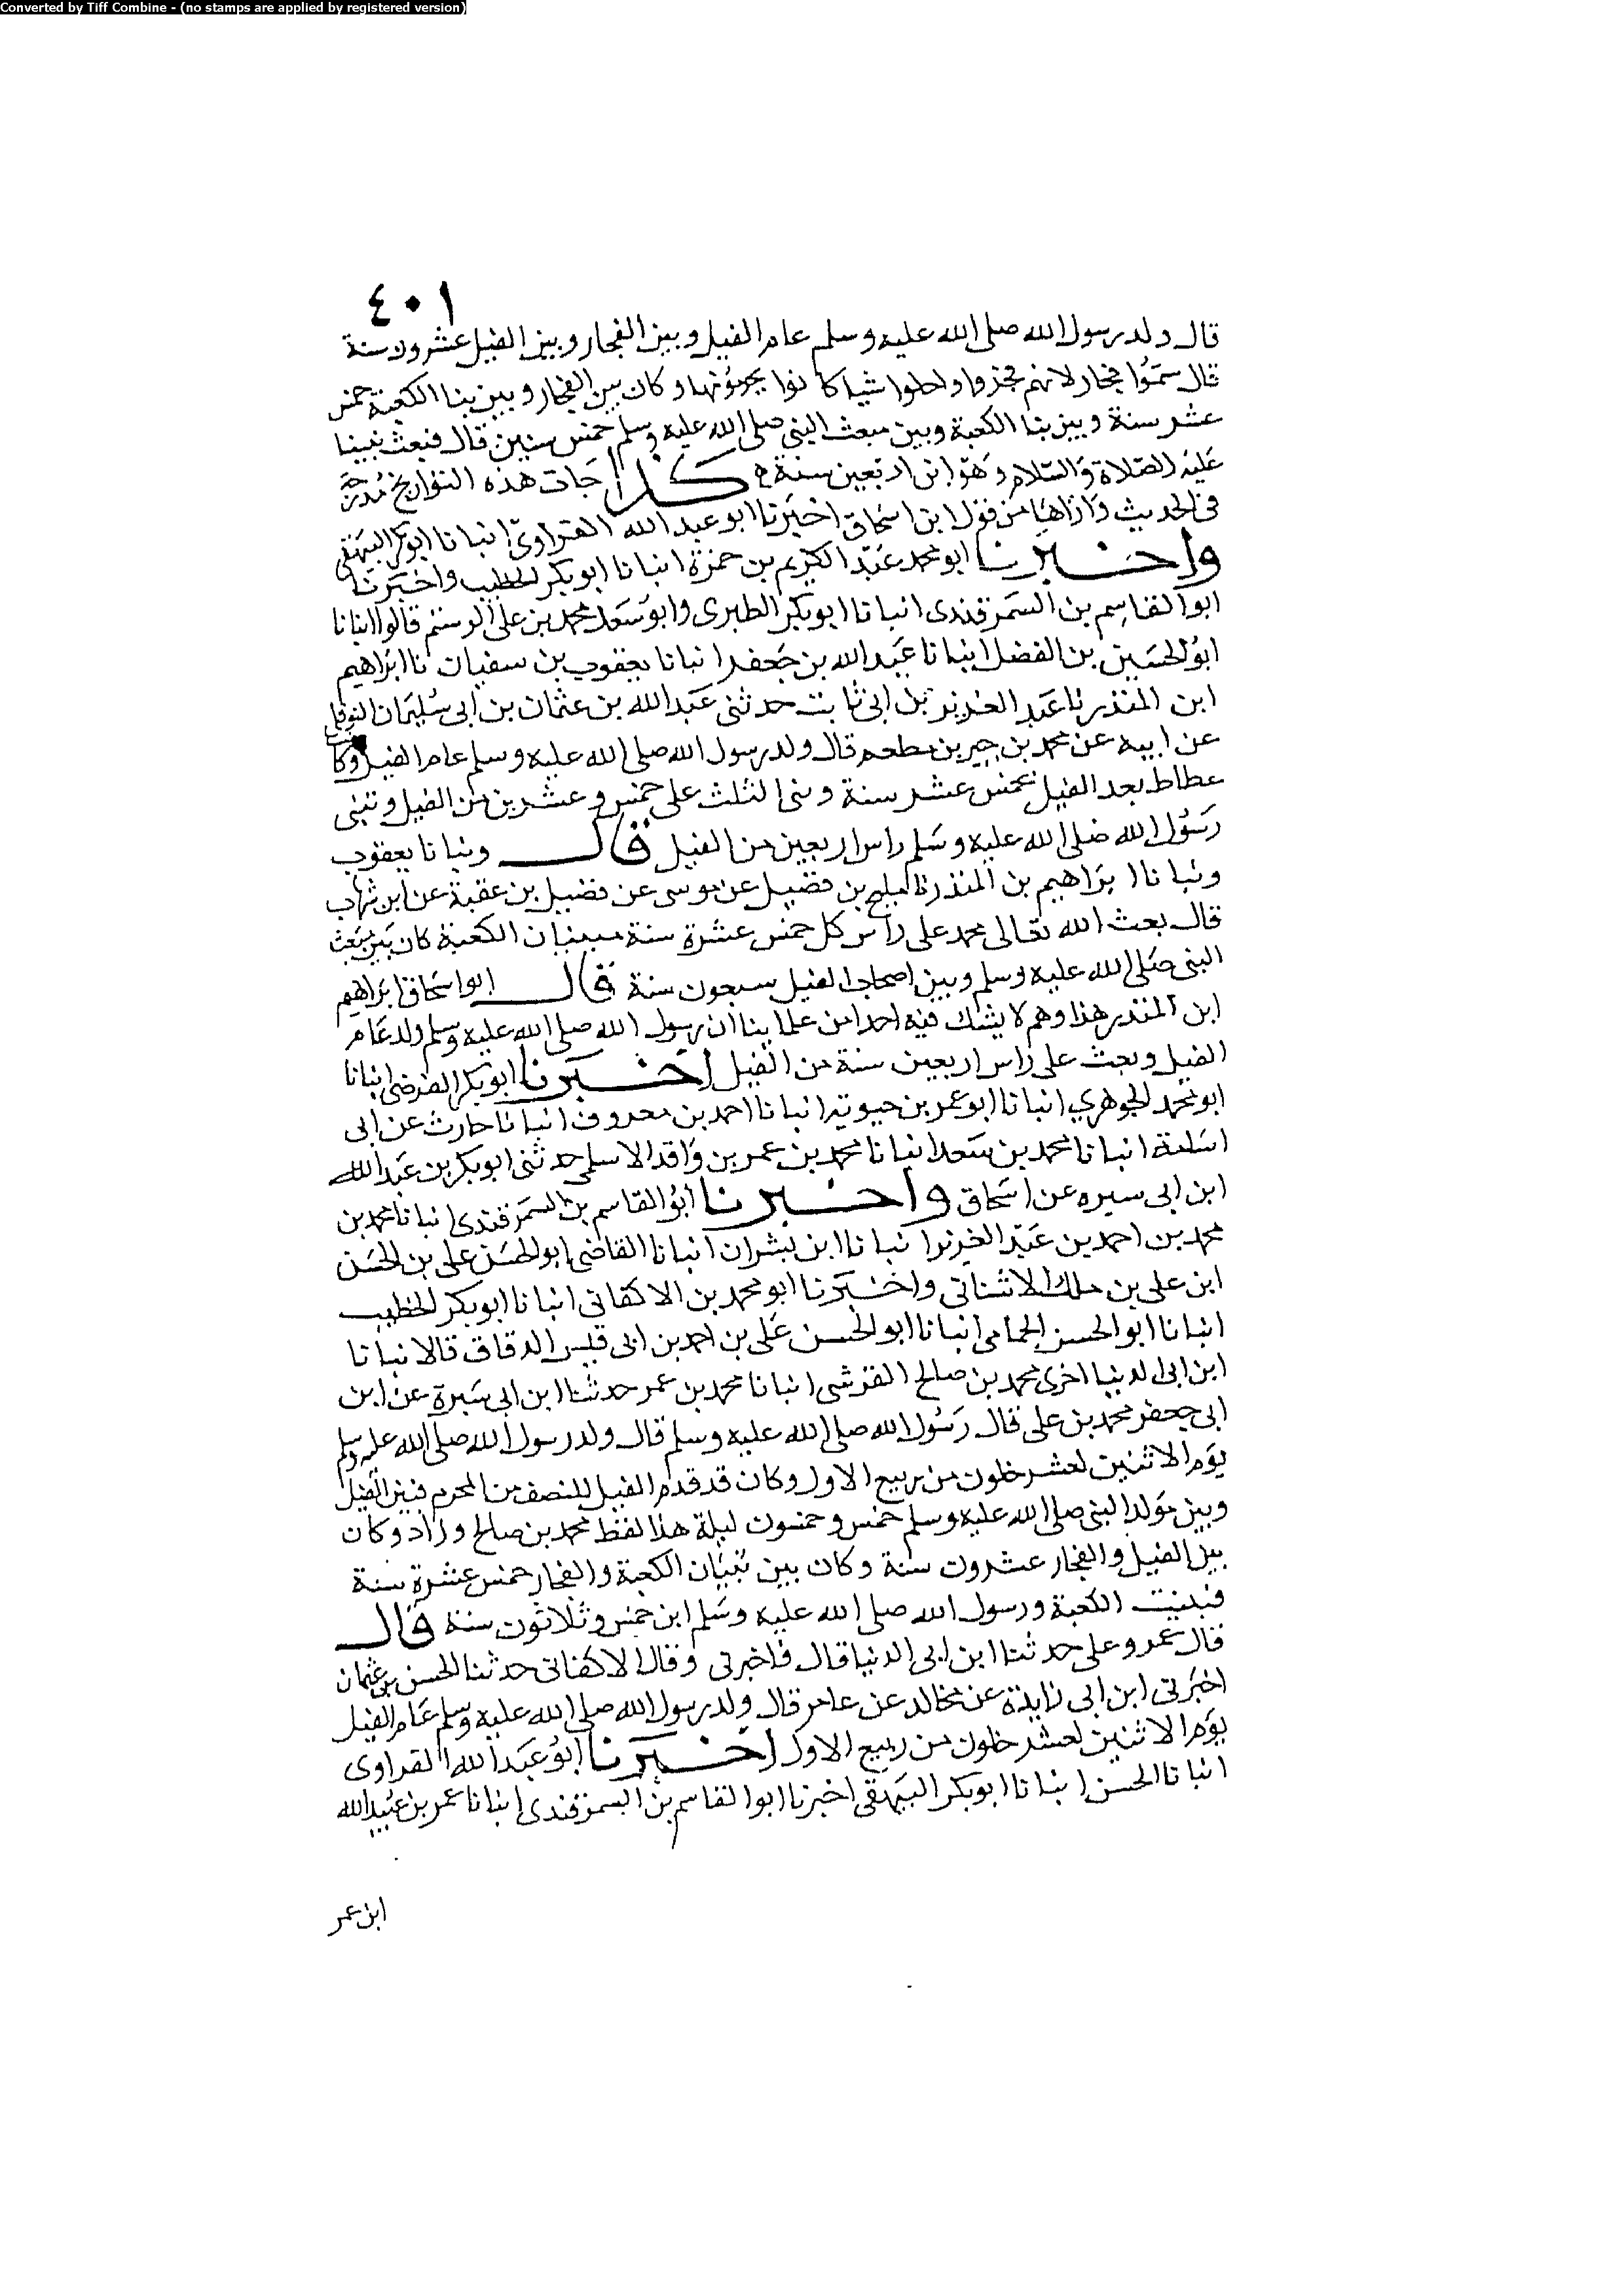 Converted by Tiff Combine - (no stamps are applied by registered version)
٤٠١
قال ولد رسول الله صلى الله عليه وسلم عام الفيل وبين الفجار وبين الفيل عشرون سنة
قال سموا فجار لانهم فجروا واحلوا شيا كانوا يحرمونها وكان بين الفجار وبين بنا الكعبة خمس
عشر سنة وبين بنا الكعبة وبين مبعث النبي صلى الله عليه وسلم خمس سنين قال فبعث نبينا
عليه الصلاة والسلام وهو ابن اربعين سنة كذا جات هذه التواريخ مدرجة
في الحديث واراها من قول ابن اسحاق اخبرنا ابو عبد الله الفراوي انبانا ابو بكر البيهقي
واخبرنا ابو محمد عبد الكريم بن حمزة انبانا ابو بكر الخطيب واخبرنا
ابو القاسم بن السمرقندي انبانا ابو بكر الطبري وابو سعد محمد بن علي الرستم قالوا انبانا
ابو الحسين بن الفضل انبانا عبد الله بن جعفر انبانا يعقوب بن سفيان نا ابراهيم
ابن المنذر نا عبد العزيز بن ابي ثابت حدثني عبد الله بن عثمان بن ابي سليمان النوفلي
عن ابيه عن محمد بن جبير بن مطعم قال ولد رسول الله صلى الله عليه وسلم عام الفيل وكانت
عطاط بعد الفيل بخمس عشر سنة وبنى على خمس وعشرين من الفيل وتنبى
رسول الله صلى الله عليه وسلم راس اربعين من الفيل قال ونبانا يعقوب
ونبانا ابراهيم بن المنذر نا فليح بن فضيل عن موسى عن فضيل بن عقبة عن ابن شهاب
قال بعث الله تعالى محمد على راس كل خمس عشرة سنة من بنيان الكعبة كان بين مبعث
النبي صلى الله عليه وسلم وبين اصحاب الفيل سبعون سنة قال ابو اسحاق ابراهيم
ابن المنذر هذا وهم لا يشك فيه احد من علماينا ان رسول الله صلى الله عليه وسلم ولد عام
الفيل وبعث على راس اربعين سنة من الفيل اخبرنا ابو بكر الفرضي انبانا
ابو محمد الجوهري انبانا ابو عمر بن حيويه انبانا احمد بن معروف انبانا حارث عن ابي
اسلمة انبانا محمد بن سعد انبانا محمد بن عمر بن واقد الاسلمي حدثني ابو بكر بن عبد الله
ابن ابي سبره عن اسحاق واخبرنا ابو القاسم بن السمرقندي انبانا محمد بن
محمد بن احمد بن عبد العزيز انبانا ابن بشران انبانا القاضي ابو الحسن علي بن الحسن
ابن علي بن ملك الاشناني واخبرنا ابو محمد بن الاكفاني انبانا ابو بكر الخطيب
انبانا ابو الحسن الحمامي انبانا ابو الحسن علي بن احمد بن ابي قيس الدقاق قالا نبانا
ابن ابي الدنيا اخرى محمد بن صالح القرشي انبانا محمد بن عمر حدثنا ابن ابي سبرة عن ابن
ابي جعفر محمد بن علي قال رسول الله صلى الله عليه وسلم قال ولد رسول الله صلى الله عليه وسلم
يوم الاثنين لعشر خلون من ربيع الاول وكان قد قدم الفيل للنصف من المحرم فبين الفيل
وبين مولد النبي صلى الله عليه وسلم خمس وخمسون ليلة هذا لفظ محمد بن صالح وزاد وكان
بين الفيل والفجار عشرون سنة وكان بين بنيان الكعبة والفجار خمس عشرة سنة
فبنيت الكعبة ورسول الله صلى الله عليه وسلم ابن خمس وثلاثون سنة قال
قال عمر وعلي حدثنا ابن ابي الدنيا قال فاخبرني وقال الاكفاني حدثنا الحسن بن عثمان
اخبرني ابن ابي زايدة عن مخالد عن عامر قال ولد رسول الله صلى الله عليه وسلم عام الفيل
يوم الاثنين لعشر خلون من ربيع الاول اخبرنا ابو عبد الله الفراوي
انبانا الحسن انبانا ابو بكر البيهقي اخبرنا ابو القاسم بن السمرقندي انبانا عمر بن عبيد الله
ابن عمر